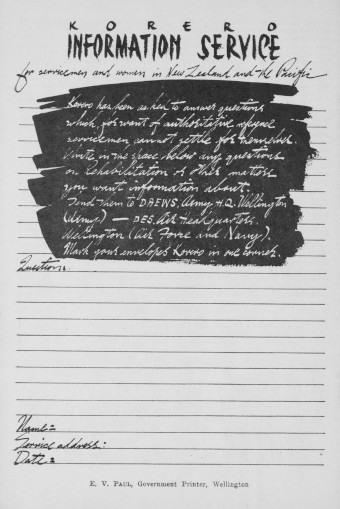 KORERO
INFORMATION SERVICE
for servicemen and women in New Zealand and the Pacific
Korero has been asked to answer questions
which for want of authoritative reference
servicemen cannot settle for themselves.
Write in the space below any questions
on rehabilitation or other matters
you want information about.
Send them to DAEWS, Army H.Q. Wellington
(Army) — DES. Air Headquarters.
Wellington (Air Force and Navy).
Mark your envelopes Korero in one corner.
Question:
Name:
Service address:
Date:
E. V. PAUL, Government Printer, Wellington